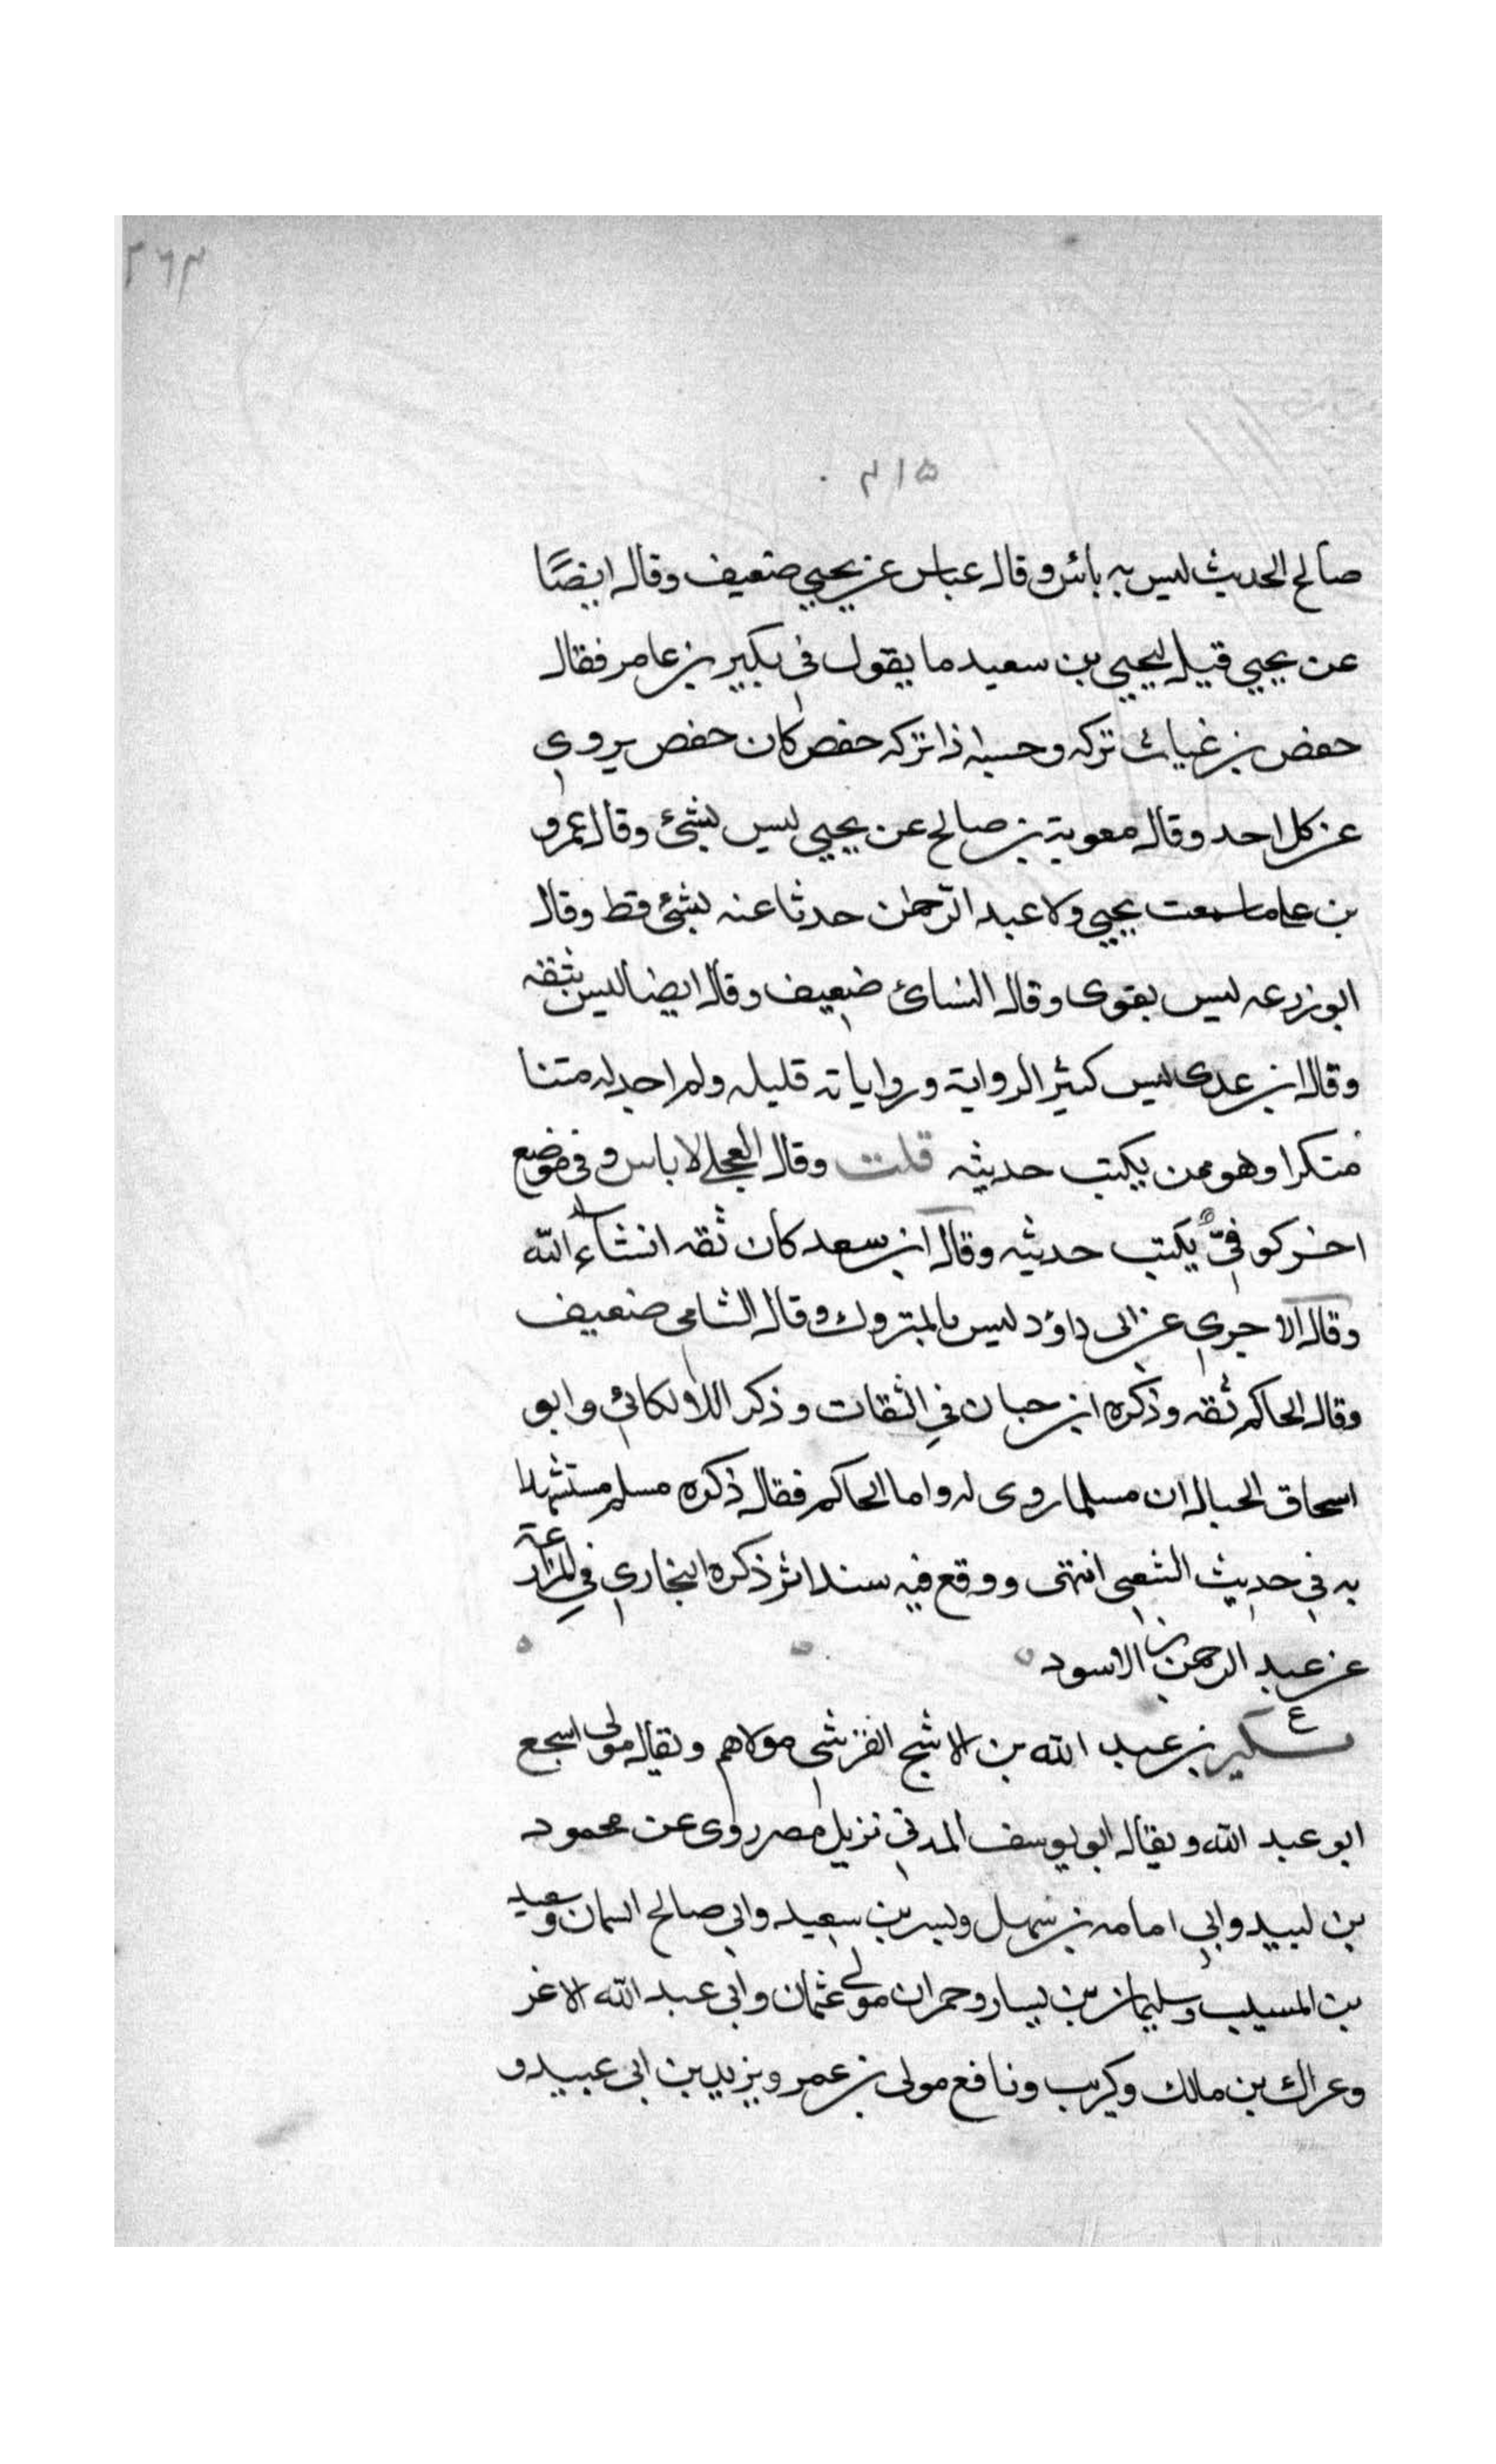 ٢٦٣
٣١٥
صالح الحديث ليس به بائس وقال عباس عن يحيي ضعيف وقال ايضًا
عن يحيي قيل ليحيي بن سعيد ما يقول في بكير بن عامر فقال
حفص بن غياث تركه وحسبه اذا تركه حفص كان حفص يروي
عن كل احد وقال معوية بن صالح عن يحيي ليس بشئ وقال عمرو
بن على ما سمعت يحيي ولا عبد الرّحمن حدثا عنه بشئ قط وقال
ابو زرعه ليس بقوى وقال النسائ ضعيف وقال ايضا ليس بثقه
وقال ابن عدى ليس كثير الرواية ورواياته قليله ولم اجد له متنا
منكرا وهو ممن يكتب حديثه قلت وقال العجلي لا باس و في موضع
اخر كوفيّ يكتب حديثه وقال ابن سعد كان ثقه انشاء الله
وقال الاجري عن ابى داؤد ليس بالمتروك وقال الشامى ضعيف
وقال الحاكم ثقه وذكره ابن حبان في الثقات وذكر اللالكائي وابو
اسحاق الحبال ان مسلما روى له واما الحاكم فقال ذكره مسلم مستشهدا
به في حديث الشعبى انتهى ووقع فيه سند اثر ذكره البخاري في المزارعة
عن عبد الرحمن بن الاسود
ع
بكير بن عبد الله بن الاشج القرشي مولاهم ويقال مولى اشجع
ابو عبد الله ويقال ابو يوسف المدني نزيل مصر روى عن محمود
بن لبيد وابي امامه بن سهل وبسر بن سعيد وابي صالح السمان وسعيد
بن المسيب وسليمان بن يسار وحمران مولى عثمان وابي عبد الله الاغر
وعراك بن مالك وكريب ونافع مولى بن عمر ويزيد بن ابى عبيد و